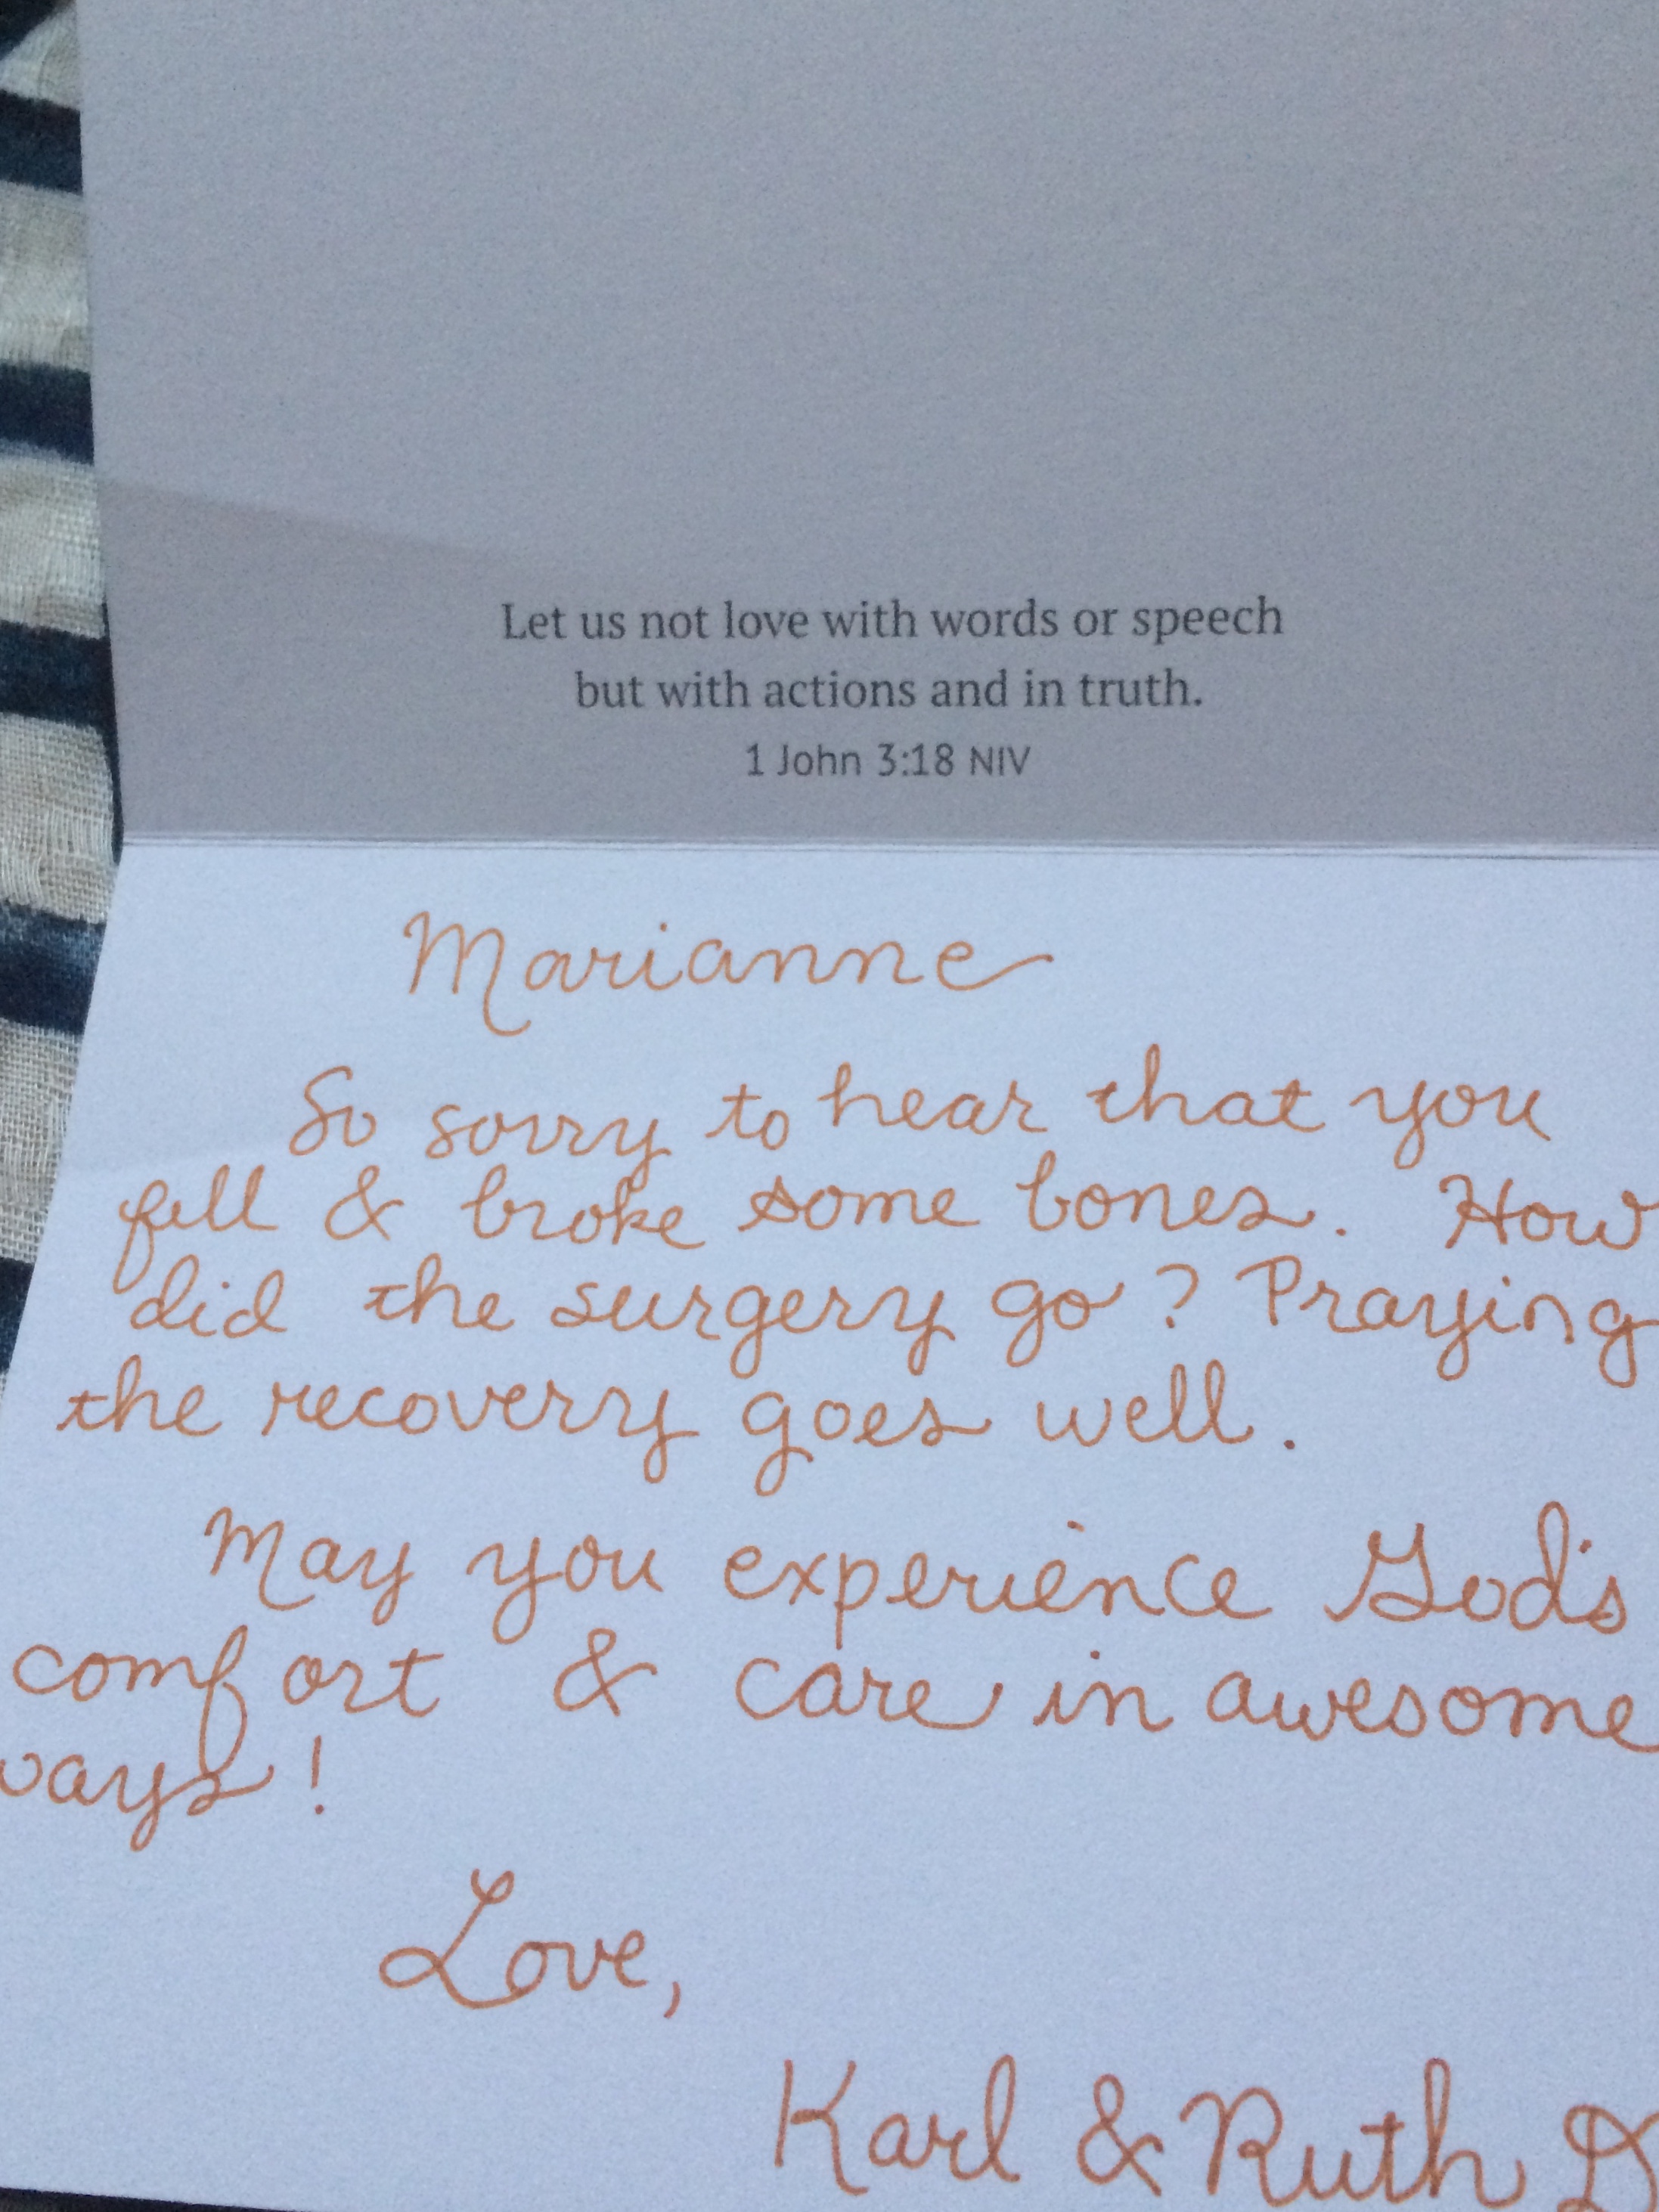 Let us not love with words or speech
but with actions and in truth.
1 John 3:18 NIV
Marianne
So sorry to hear that you
fell & broke some bones. How
did the surgery go? Praying
the recovery goes well.
May you experience God's
comfort & care in awesome
ways!
Love,
Karl & Ruth D